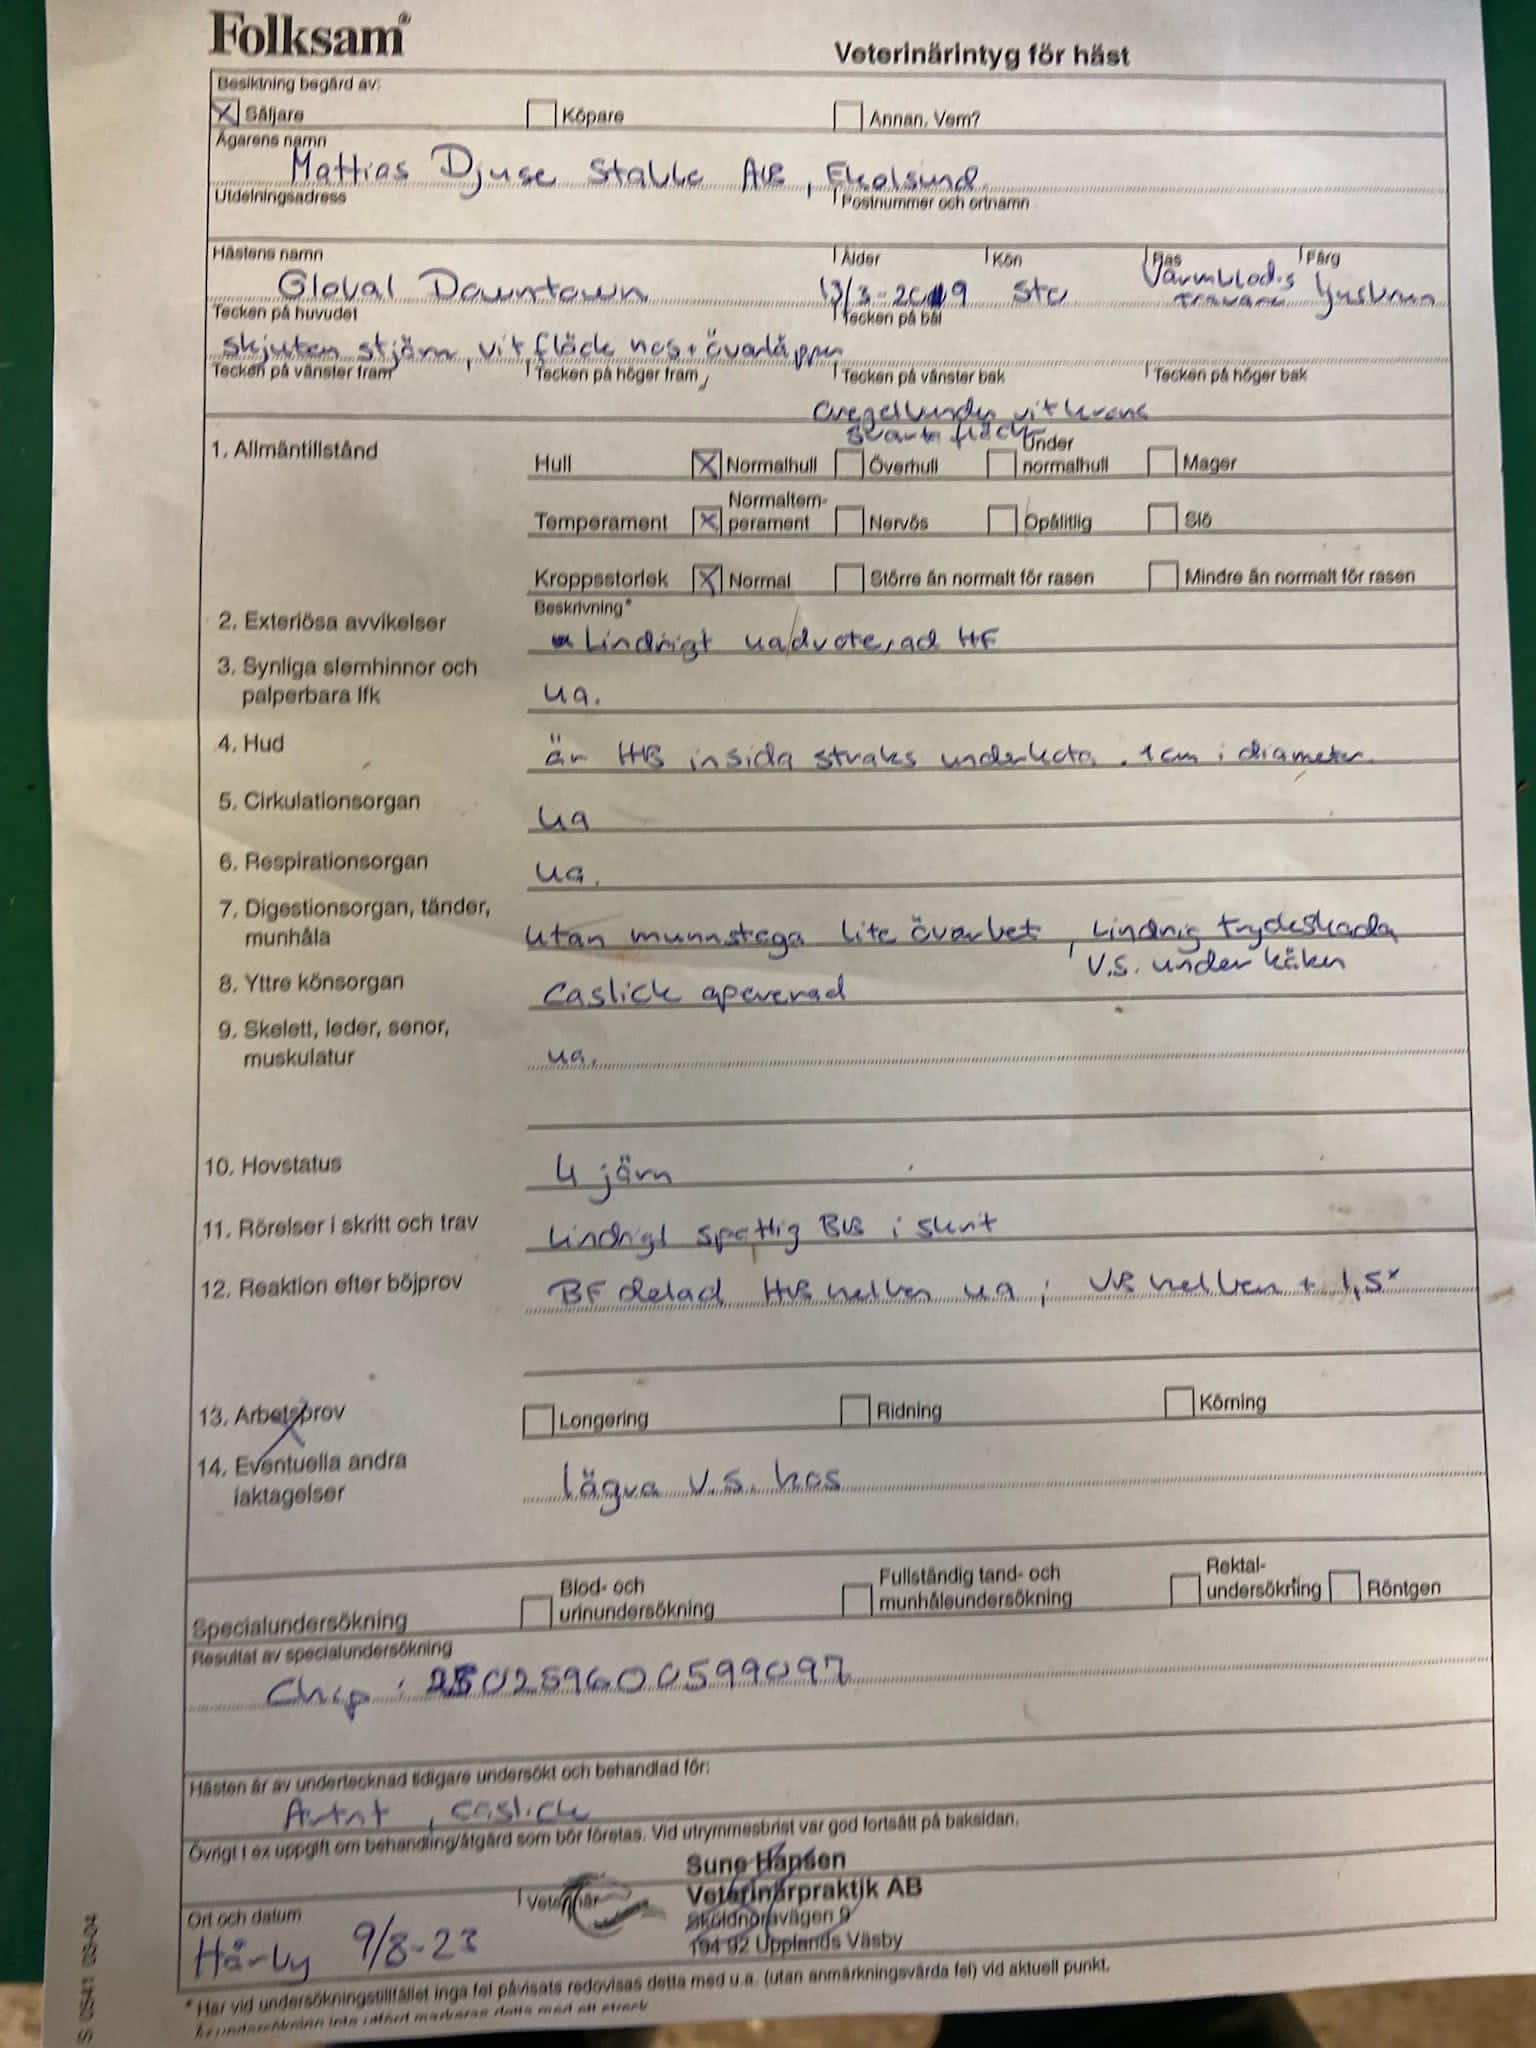 Folksam®
Veterinärintyg för häst
Besiktning begärd av:
Säljare Köpare Annan. Vem?
Ägarens namn
Mattias Djuse Stable AB, Ekolsund
Utdelningsadress Postnummer och ortnamn
Hästens namn Ålder Kön Ras Färg
Global Downtown 13/3-2019 Sto Varmblods travare ljusbrun
Tecken på huvudet Tecken på bål
skjuten stjärn, vit fläck nos + överläppen
Tecken på vänster fram Tecken på höger fram Tecken på vänster bak Tecken på höger bak
oregelbunden vit krans
svarta fläck
1. Allmäntillstånd
Hull Normalhull Överhull Under normalhull Mager
Temperament Normaltemperament Nervös Opålitlig Slö
Kroppsstorlek Normal Större än normalt för rasen Mindre än normalt för rasen
Beskrivning*
2. Exteriösa avvikelser Lindrigt HF
3. Synliga slemhinnor och
palperbara lfk ua.
4. Hud är HB insida straks under kota. 1cm i diameter.
5. Cirkulationsorgan ua
6. Respirationsorgan ua.
7. Digestionsorgan, tänder,
munhåla utan munnstega lite överbet, Lindrig tryckskada
V.S. under käken
8. Yttre könsorgan Caslick opererad
9. Skelett, leder, senor,
muskulatur ua.
10. Hovstatus 4 järn
11. Rörelser i skritt och trav Lindrigt spattig BB i skrit
12. Reaktion efter böjprov BF delad HB helben ua; VB helben + 1,5°
13. Arbetsprov Longering Ridning Körning
14. Eventuella andra
iaktagelser V.S. has
Specialundersökning Blod- och urinundersökning Fullständig tand- och munhåleundersökning Rektalundersökning Röntgen
Resultat av specialundersökning
Chip: 250259600599097
Hästen är av undertecknad tidigare undersökt och behandlad för:
Artrit, caslick
Övrigt t ex uppgift om behandling/åtgärd som bör företas. Vid utrymmesbrist var god fortsätt på baksidan.
Sune Hansen
Veterinär Veterinärpraktik AB
Sköldnoravägen 9
194 92 Upplands Väsby
Ort och datum
Hårby 9/8-23
* Har vid undersökningstillfället inga fel påvisats redovisas detta med u.a. (utan anmärkningsvärda fel) vid aktuell punkt.
Är undersökning inte utförd markeras detta med ett streck
S 0541 03-04